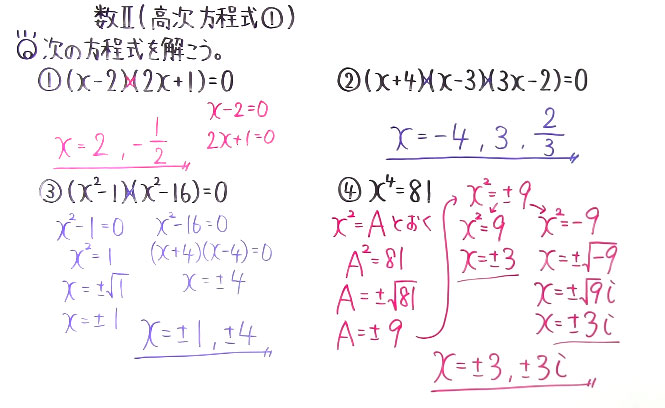 数Ⅱ(高次方程式①)
次の方程式を解こう。
①(x-2)(2x+1)=0
x-2=0
2x+1=0
x=2, -1/2
②(x+4)(x-3)(3x-2)=0
x=-4, 3, 2/3
③(x²-1)(x²-16)=0
x²-1=0
x²=1
x=±√1
x=±1
x²-16=0
(x+4)(x-4)=0
x=±4
x=±1, ±4
④ x⁴=81
x²=Aとおく
A²=81
A=±√81
A=±9
x²=±9
x²=9
x=±3
x²=-9
x=±√-9
x=±√9i
x=±3i
x=±3, ±3i